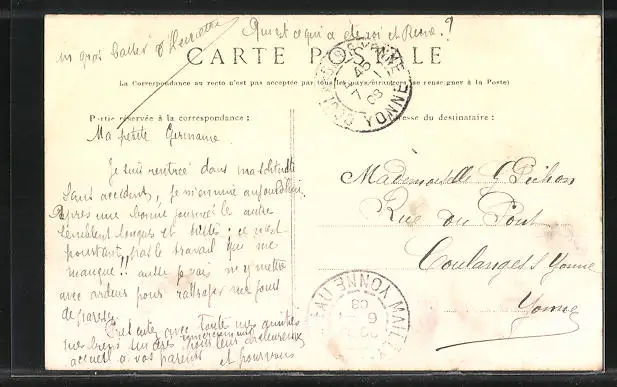 un gros baiser d'Henriette
Qu'est ce qui a et
CARTE POSTALE
La Correspondance au recto n'est pas acceptée par tous les pays étrangers (se renseigner à la Poste)
Partie réservée à la correspondance :
Adresse du destinataire :
Ma petite Germaine
Je suis rentrée dans ma solitude
sans accident, je m'ennuie aujourd'hui.
Après une bonne journée les autres
semblent longues et tristes ; ce n'est
pourtant pas le travail qui me
manque !! aussi je vais m'y mettre
avec ardeur pour rattraper mes jours
de paresse.
avec toute mes amitiés
mes biens sincères remerciements pour leur chaleureux
accueil à vos parents et pour vous
Mademoiselle G Pichon
Rue du Pont
Coulanges s Yonne
Yonne
YONNE
7 - 1
08
MAILLY
YONNE
6 - 1
08